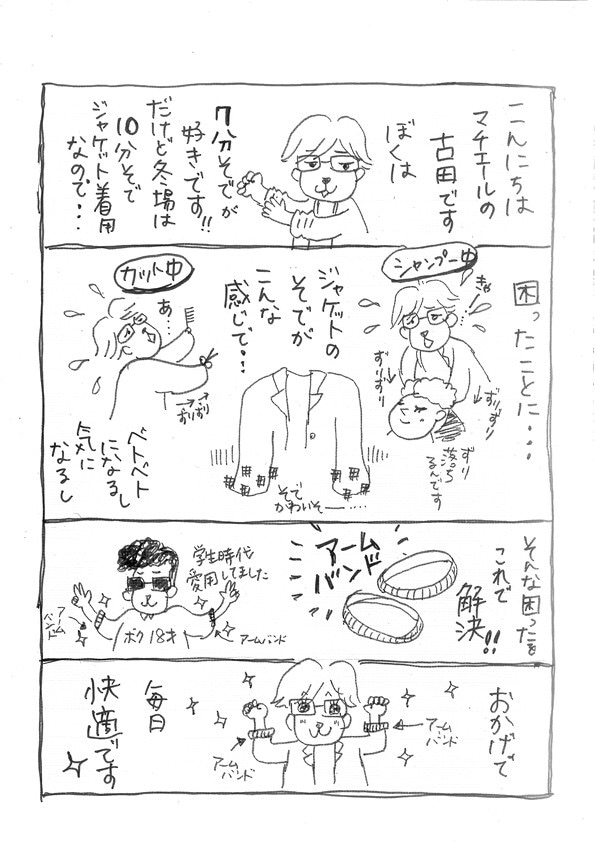 こんにちは
マチエールの
古田です
ぼくは
7分そでが
好きです!!
だけど冬場は
10分そで
ジャケット着用
なので・・
困ったことに・・・
シャンプー中
きゃー
ずりずり
ずりずり
ずり
落ち
るんです
ジャケットの
そでが
こんな
感じで・・
そで
かわいそー……
カット中
あ…
ずりずり
ベトベト
になるし
気に
なるし
そんな困ったを
これで
解決!!
アーム
バンド
学生時代
愛用してました
アーム
バンド
ボク18才
アームバンド
おかげで
アーム
バンド
アーム
バンド
毎日
快適です